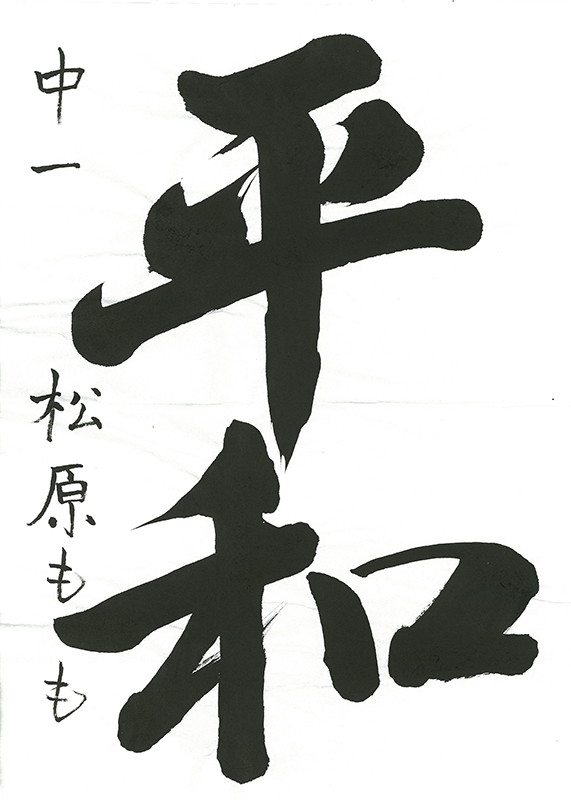 平和
中一 松原もも